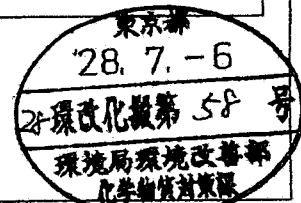 東京都
'28. 7. -6
28環改化擬第 58 号
環境局環境改善部
化学物質対策課